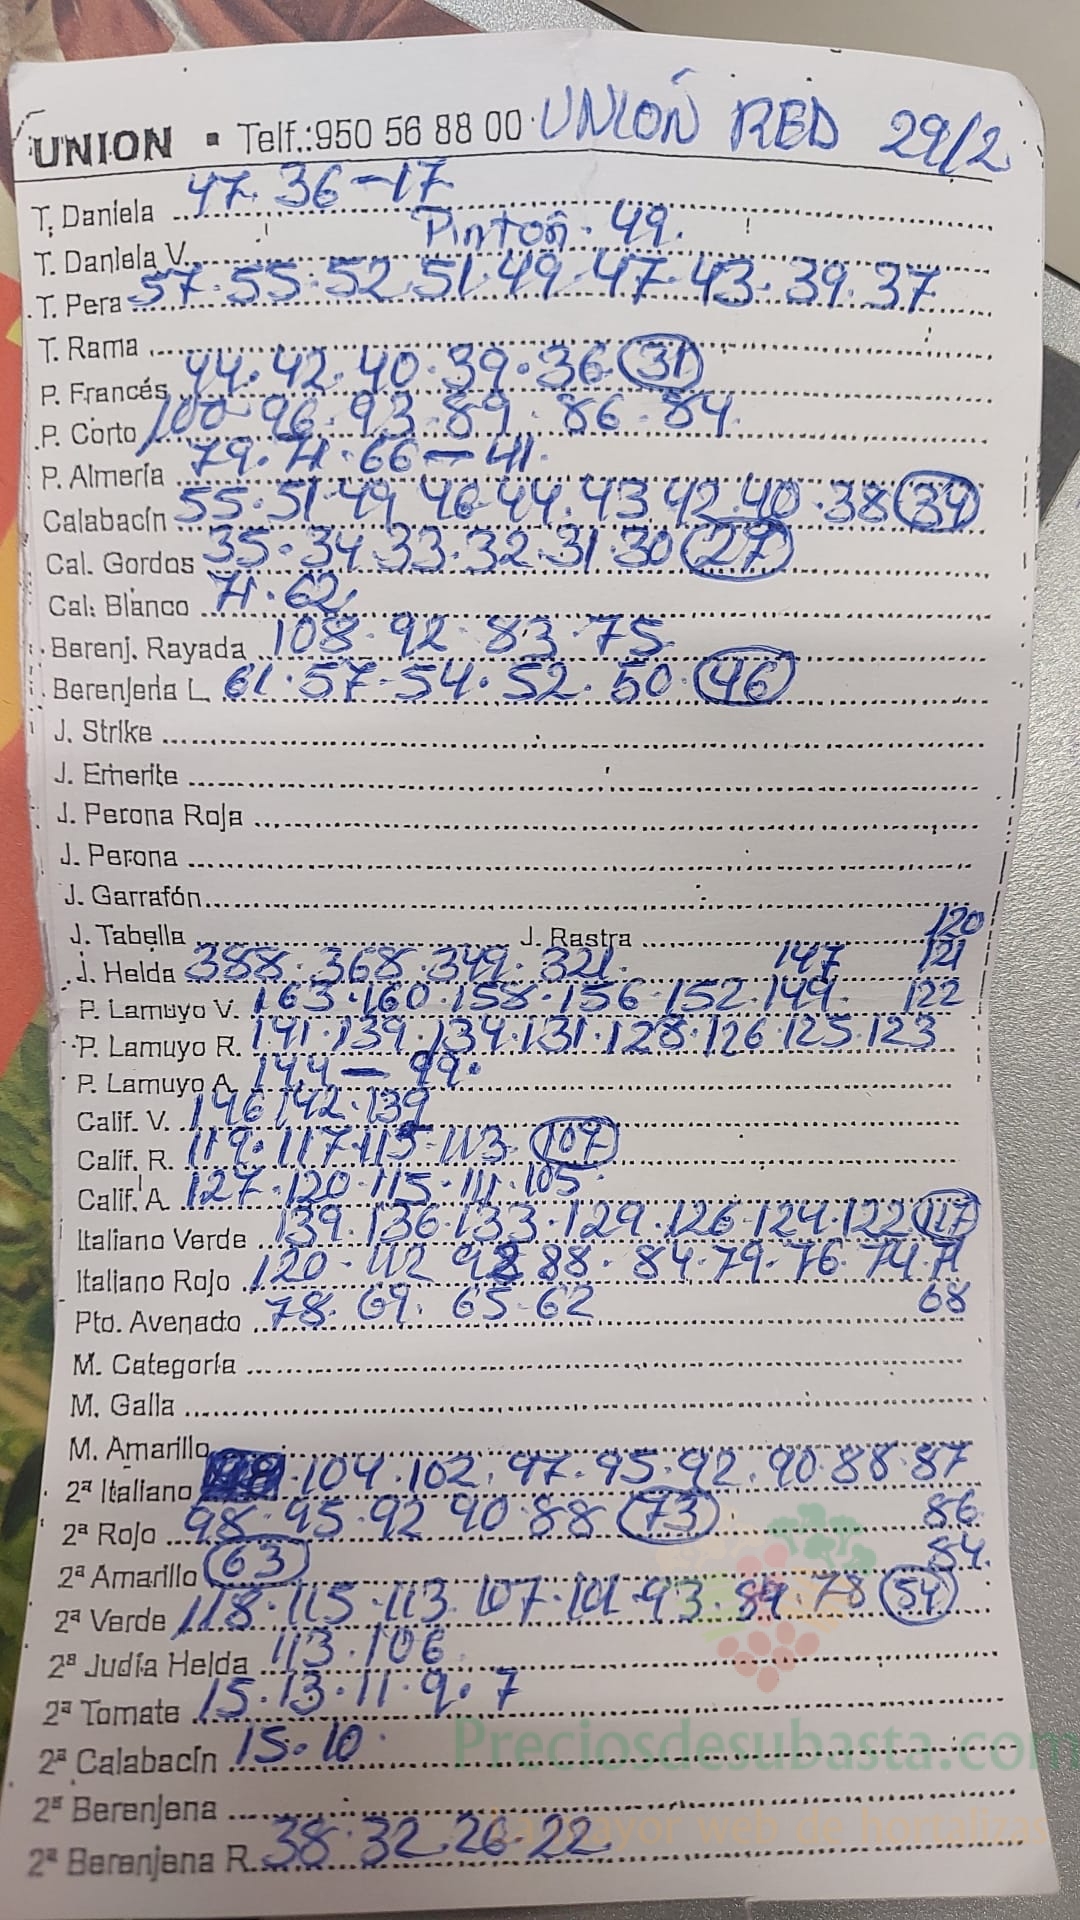 UNION ▪ Telf.:950 56 88 00 UNIÓN RED 29/2
T. Daniela 47. 36-17
T. Daniela V. Pintón - 49.
T. Pera 57. 55. 52. 51. 49. 47. 43. 39. 37
T. Rama
P. Francés 44. 42. 40. 39. 36 31
P. Corto 100 96. 93. 89. 86. 84.
P. Almería 79. 71. 66 - 41.
Calabacín 55. 51. 49 46. 44. 43. 42. 40. 38 34
Cal. Gordos 35. 34. 33. 32. 31. 30 27
Cal. Blanco 71. 62
Berenj. Rayada 108. 92. 83. 75
Berenjena L. 61. 57. 54. 52. 50. 46
J. Strike
J. Emerite
J. Perona Roja
J. Perona
J. Garrafón
J. Tabella J. Rastra 120
J. Helda 388. 368. 349. 321. 147 121
P. Lamuyo V. 163. 160. 158. 156. 152. 149. 122
P. Lamuyo R. 141. 139. 134. 131. 128. 126. 125. 123
P. Lamuyo A. 144 - 99.
Calif. V. 146 142. 139
Calif. R. 119. 117. 115. 113 107
Calif. A. 127. 120. 115. 111. 105.
Italiano Verde 139. 136. 133. 129. 126. 124. 122 117
Italiano Rojo 120. 112 88. 84. 79. 76. 74. 71
Pto. Avenado 78. 69. 65. 62 68
M. Categoría
M. Galla
M. Amarillo
2ª Italiano 104. 102. 97. 95. 92. 90. 88. 87
2ª Rojo 98. 95. 92 90. 88 73 86
2ª Amarillo 63 84.
2ª Verde 118. 115. 113. 107. 101. 93. 84. 78 54
2ª Judía Helda 113. 106
2ª Tomate 15. 13. 11. 9. 7
2ª Calabacín 15. 10.
Preciosdesubasta.com
2ª Berenjena
mayor web de hortalizas
2ª Berenjena R. 38. 32. 26. 22.